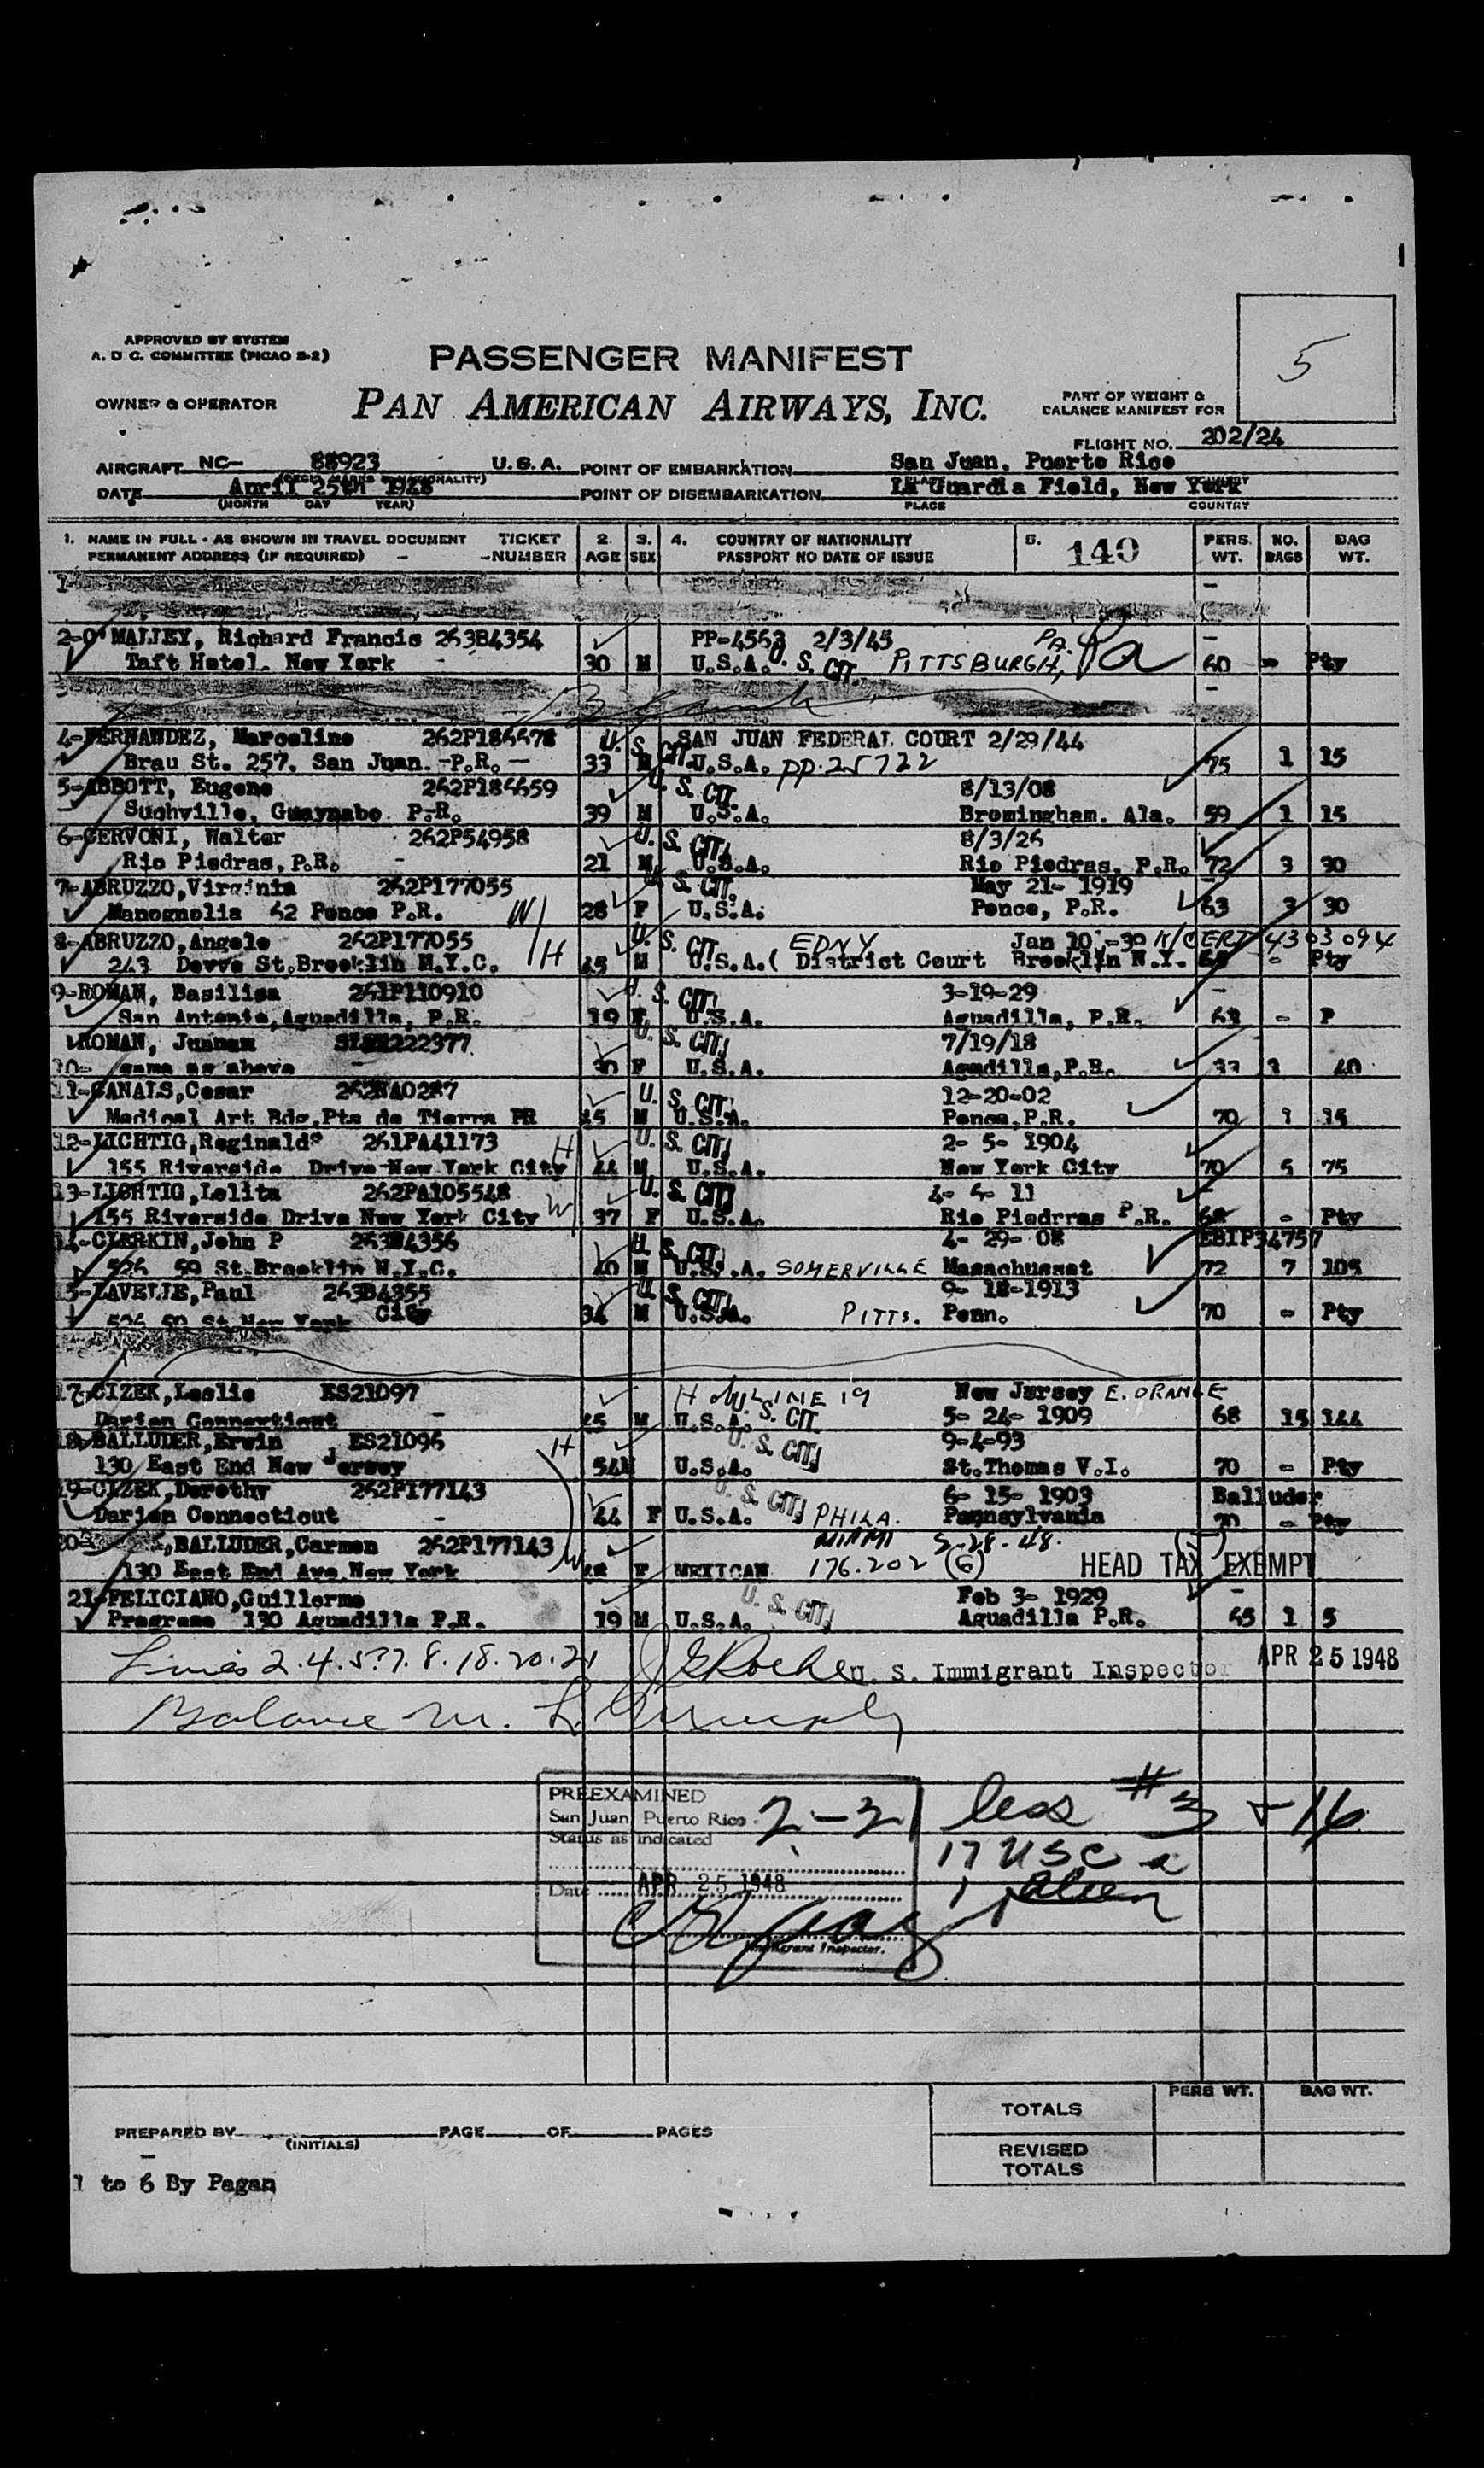 APPROVED BY SYSTEM
A. D C. COMMITTEE (PICAO 3-2)
PASSENGER MANIFEST
5
OWNER & OPERATOR
PAN AMERICAN AIRWAYS, INC.
PART OF WEIGHT &
BALANCE MANIFEST FOR
FLIGHT NO. 202/24
AIRCRAFT NC- 88923 U.S.A. POINT OF EMBARKATION San Juan, Puerto Rico
DATE April 25th 1948 POINT OF DISEMBARKATION La Guardia Field, New York
(MONTH DAY YEAR) PLACE COUNTRY
1. NAME IN FULL - AS SHOWN IN TRAVEL DOCUMENT TICKET 2. 3. 4. COUNTRY OF NATIONALITY 5. 140 PERS. NO. BAG
PERMANENT ADDRESS (IF REQUIRED) NUMBER AGE SEX PASSPORT NO DATE OF ISSUE WT. BAGS WT.
1-
2-O'MALLEY, Richard Francis 263B4354 PP-4563 2/3/45 PA.
Taft Hotel. New York 30 M U.S.A. U. S. CIT. PITTSBURGH, Pa 60 - Pty
4-FERNANDEZ, Marcelino 262P186678 U. S. CIT. SAN JUAN FEDERAL COURT 2/29/44
Brau St. 257. San Juan. P.R. 33 M U.S.A. PP.25722 75 1 15
5-ABBOTT, Eugene 262P186659 U. S. CIT. 8/13/08
Suchville, Guaynabo P.R. 39 M U.S.A. Bromingham. Ala. 59 1 15
6-CERVONI, Walter 262P54958 U. S. CIT. 8/3/26
Rio Piedras, P.R. 21 M U.S.A. Rio Piedras, P.R. 72 3 30
7-ABRUZZO,Virginia 262P177055 U. S. CIT. May 21- 1919
Manognolia 62 Ponce P.R. W 28 F U.S.A. Ponce, P.R. 63 3 30
8-ABRUZZO,Angelo 262P177055 U. S. CIT. EDNY Jan 10 -30 N/CERT 4303094
243 Devve St.Brooklin N.Y.C. H 45 M U.S.A.( District Court Brooklin N.Y. - Pty
9-ROMAN, Basilisa 261P110910 U. S. CIT. 3-19-29
San Antonio,Aguadilla, P.R. 19 F U.S.A. Aguadilla, P.R. 63 - P
ROMAN, 222377 U. S. CIT. 7/19/18
10- same as above 30 F U.S.A. Agadilla,P.R. 40
11-CANALS,Cesar U. S. CIT. 12-20-02
Medical Art Bdg,Pta de Tierra PR 45 M U.S.A. Ponce,P.R. 70 1 15
12-LICHTIG,Reginald 261PA41173 H U. S. CIT. 2- 5- 1904
155 Riverside Drive New York City 44 M U.S.A. New York City 70 5 75
13-LICHTIG,Lolita 262PA105548 W U. S. CIT. 4- 6- 11
155 Riverside Drive New York City 37 F U.S.A. Rio Piedrras P.R. - Pty
14-CLERKIN,John P 263B4356 U. S. CIT. 4- 29- 08 EBIP34757
526 50 St.Brooklin N.Y.C. 40 M U.S.A. SOMERVILLE Masachusset 72 7 105
15-LAVELLE,Paul 263B4355 U. S. CIT. 9- 18-1913
526 50 St New York City 34 M U.S.A. PITTS. Penn. 70 - Pty
17-CIZEK,Leslie ES21097 New Jersey E. ORANGE
Darien Connecticut 45 M U.S.A. U. S. CIT. 5- 24- 1909 68 15 144
18-BALLUDER,Erwin ES21096 H U. S. CIT. 9-4-93
130 East End New Jersey 54M U.S.A. St.Thomas V.I. 70 - Pty
19-CIZEK,Dorothy 262P177143 U. S. CIT. 6- 15- 1903 Balluder
Darien Connecticut 44 F U.S.A. PHILA. Pennsylvania 70 - Pty
20- ,BALLUDER,Carmen 262P177143 MIAMI 5-28-48.
130 East End Ave New York W F MEXICAN 176.202 (6) HEAD TAX EXEMPT
21-FELICIANO,Guillermo U. S. CIT. Feb 3- 1929
Progreso 130 Aguadilla P.R. 19 M U.S.A. Aguadilla P.R. 65 1 5
Lines 2.4.5?7.8.18.20.21 U. S. Immigrant Inspector APR 25 1948
Balance
PREEXAMINED
San Juan Puerto Rico 2-21 less #3 + 16
Status as indicated
17 USC &
Date APR 25 1948 1 Alien
Immigrant Inspector.
PERS WT. BAG WT.
TOTALS
PREPARED BY (INITIALS) PAGE OF PAGES
REVISED
TOTALS
1 to 6 By Pagan